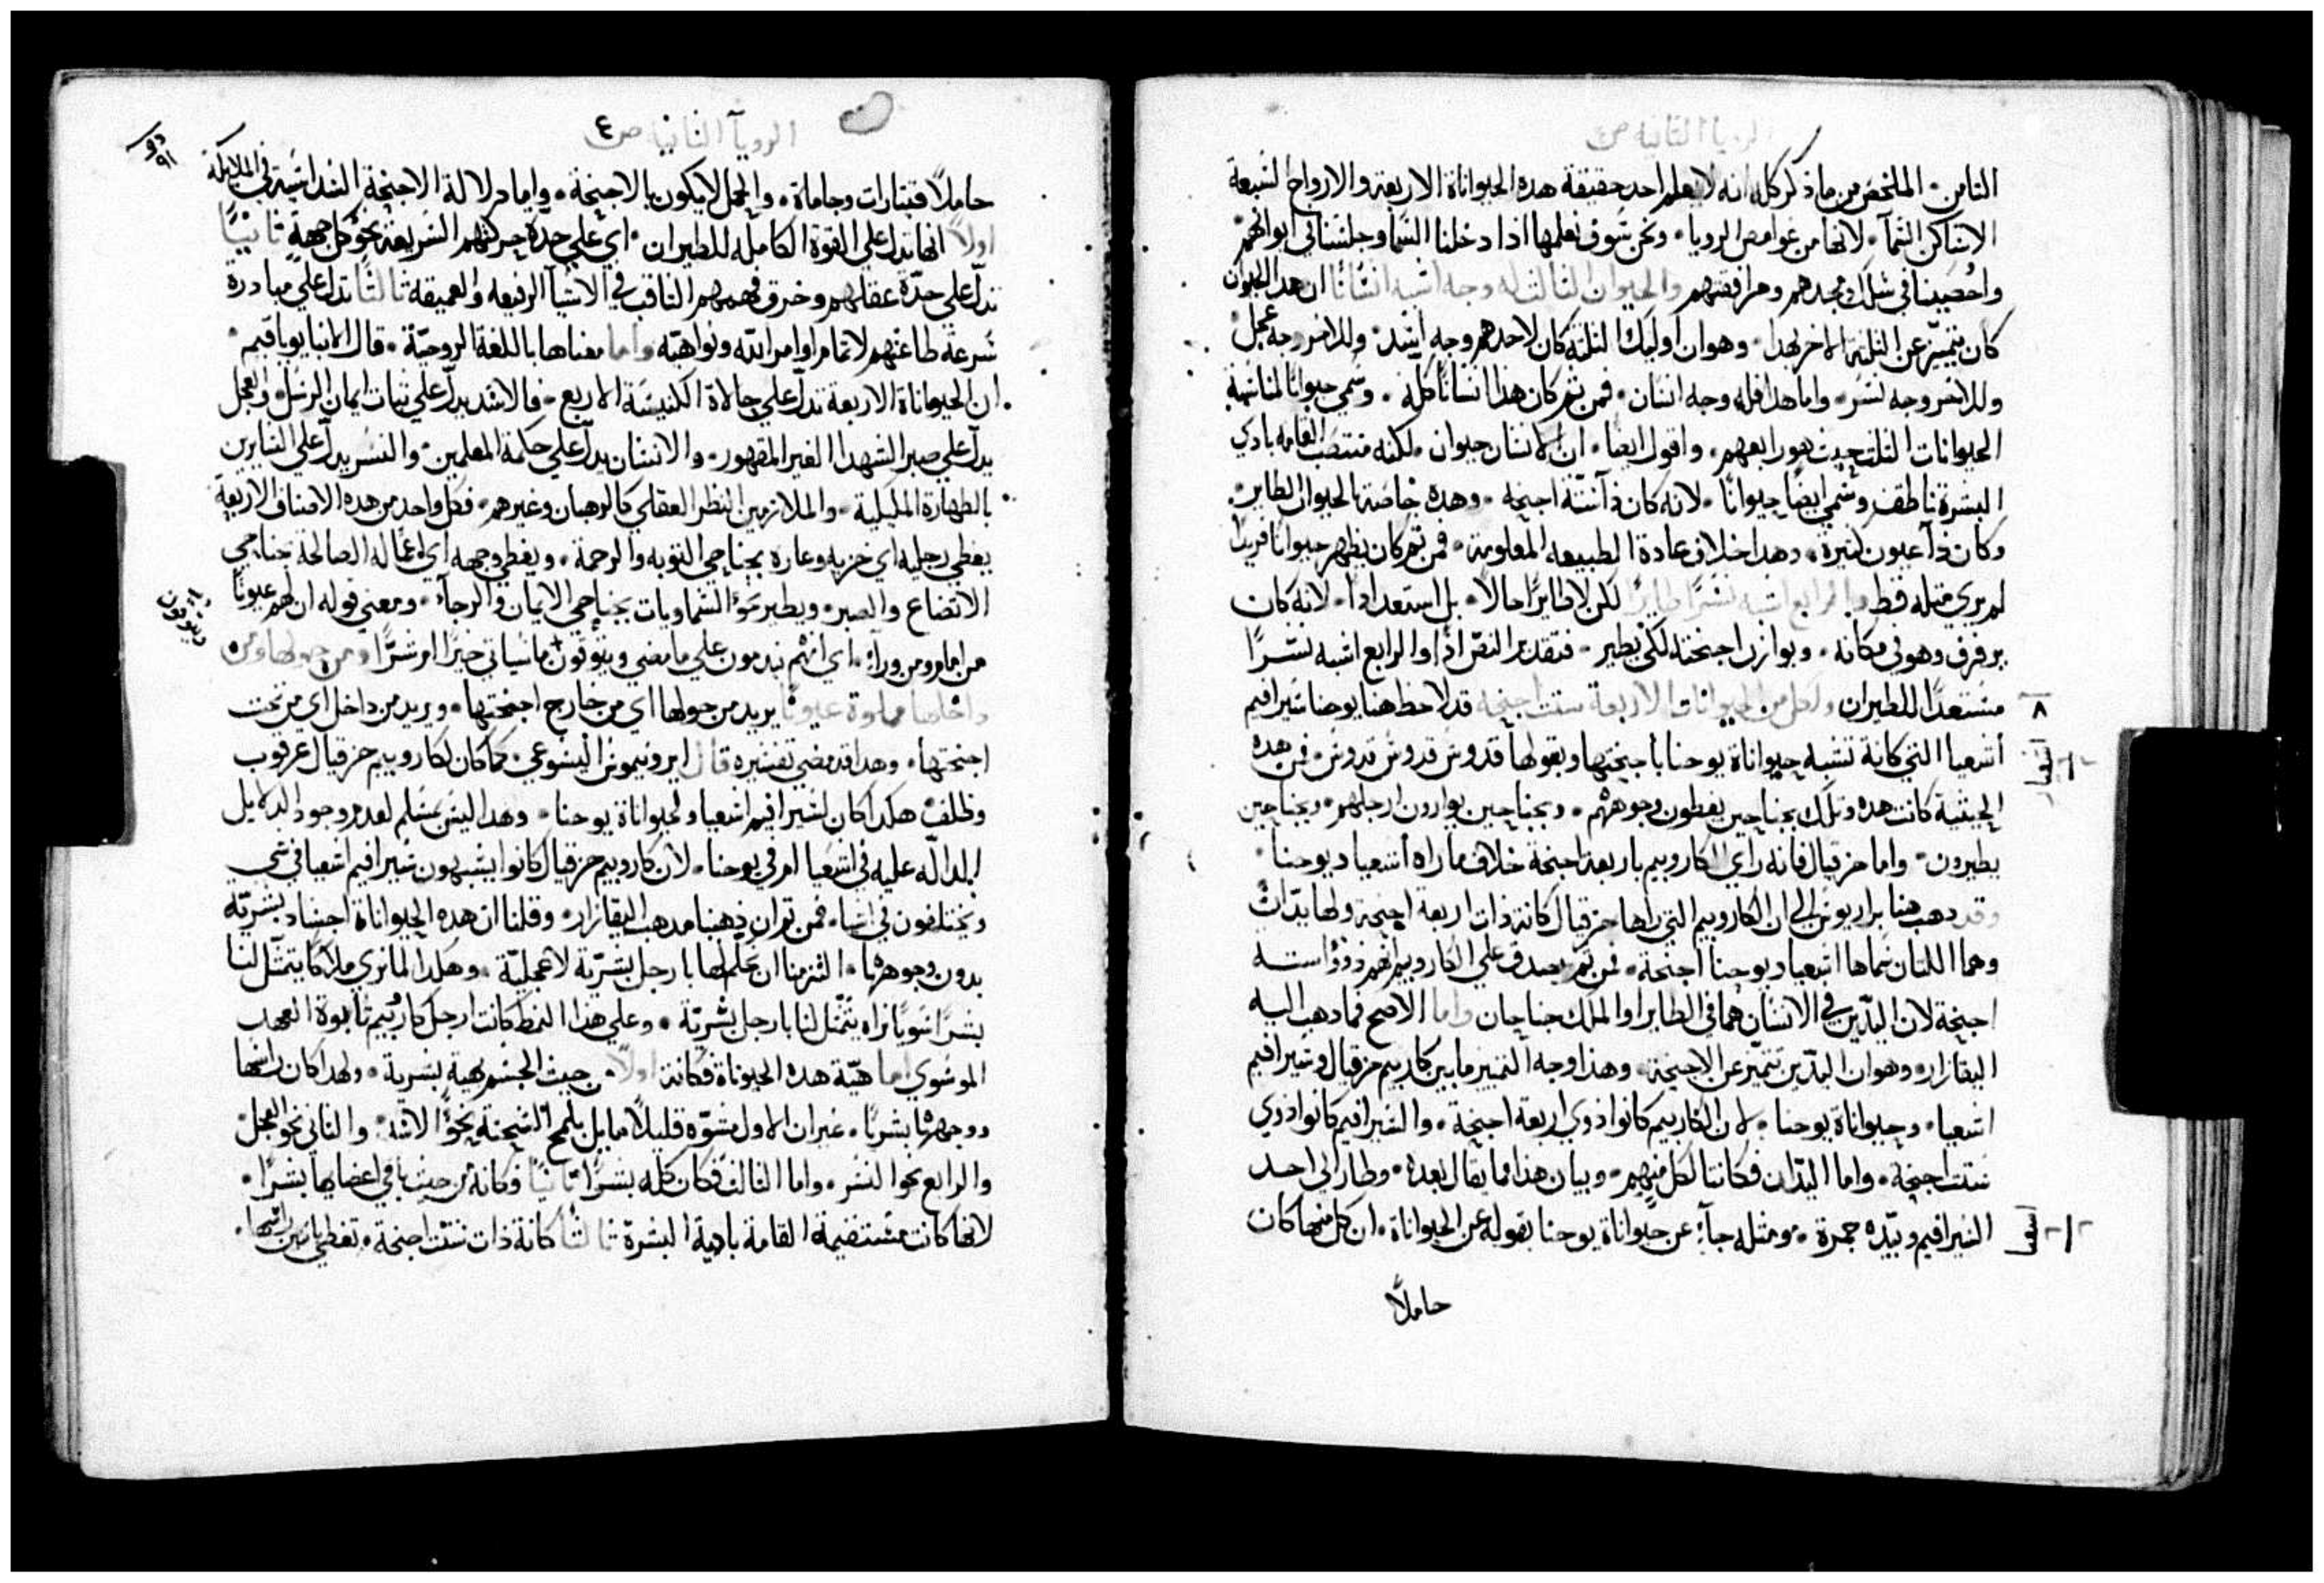 الرويا الثانيه ص٤
الثامن · الملخص من ما ذكر كله انه لا يعلم احد حقيقة هده الحيواناة الاربعة والارواح السبعة
الا ساكن السمآ · لانها من غوامض الرويا · ونحن سوف نعلمها اذا دخلنا السما وجلسنا في ابوابهم
واحصينا في سلك مجدهم ومرافقتهم والحيوان الثالث له وجه اشبه انسانًا ان هدا الحيوان
كان يتميّز عن الثلثة الاخر بهدا · وهو ان اوليك الثلثة كان لاحدهم وجه اسد · وللاخر وجه عجل ·
وللاخر وجه نسر · واما هدا فله وجه انسان · فمن ثم كان هذا انسانًا كله · وسمي حيوانًا لمناسبة
الحيوانات الثلثة حيث هو رابعهم · واقول ايضا · ان الانسان حيوان · لكنه منتصب القامه بادي
البشرة ناطق وسمي ايضًا حيوانًا · لانه كان ذا ستة اجنحه · وهده خاصة الحيوان الطاير ·
وكان ذا عيون كثيرة · وهدا خلاف عادة الطبيعه المعلومة · فمن ثم كان يظهر حيوانًا فريدًا
لم يري مثله قط والرابع اشبه نسرًا طايرًا لكن لا طايرًا حالاً · بل استعدادًا · لانه كان
يرفرف وهو في مكانه · ويوازن اجنحته لكي يطير · فتقدير النص اذًا والرابع اشبه نسرًا
مستعدًا للطيران ولكل من الحيوانات الاربعة ستت اجنحه قد لاحظ هنا يوحنا سيرافيم
٨
اشعيا التي كانة تشبه حيواناة يوحنا باجنحتها وبقولها قدوس قدوس قدوس · فمن هده
اشعيا ٦
الحيثية كانت هده وتلك بجناحين يغطون وجوههم · وبجناحين يوارون ارجلهم · وبجناحين
يطيرون · واما حزقيال فانه راي الكاروبيم باربعة اجنحة خلاف ما راه اشعيا ويوحنا ·
وقد دهب هنا براريوس الي ان الكاروبيم التي راها حزقيال كانة ذات اربعة اجنحة ولها يدّان
وهما اللتان سماها اشعيا ويوحنا اجنحة · فمن ثم يصدق علي الكاروبيم انهم ذوو استـــه
اجنحة لان اليدّين في الانسان هما في الطاير او الملك جناحان واما الاصح فما دهب اليه
البقازار · وهو ان اليدّين تتميّز عن الاجنحة · وهذا وجه التمييز ما بين كاربيم حزقيال وسيرافيم
اشعيا · وحيواناة يوحنا · لان الكاربيم كانوا ذوي اربعة اجنحة · والسيرافيم كانوا ذوي
ستت اجنحة · واما اليدّان فكانتا لكل منهم · وبيان هذا مما يقال بعده · وطار الي احد
السيرافيم وبيّده جمرة · ومثله جآء عن حيواناة يوحنا بقوله عن الحيواناة · ان كل منها كان
اشعيا ٦
حاملاً
الرويآ الثانيا ص٤
حاملاً قيتارات وجاماة · والحمل لا يكون بالاجنحة · واما دلالة الاجنحة السداسية في الملايكة
اولاً انها تدل علي القوة الكامله للطيران · اي علي حدّة حركتهم السريعة نحو كل جهة ثانيًا
تدلّ علي حدّة عقلهم وخرق فهمهم الثاقب في الاشيآ الرفيعه والعميقه ثالثًا تدل علي مبادرة
سرعة طاعتهم لاتمام اوامر الله ونواهيّه واما معناها باللغة الروحيّة · قال الانبا يوياقيم ·
ان الحيواناة الاربعة تدلّ علي حالاة الكنيسة الاربع · فالاسد يدلّ علي ثبات ايمان الرسل · والعجل
يدلّ علي صبر الشهدا الغير المقهور · والانسان يدلّ علي حكمة المعلمين · والنسر يدلّ علي السايرين
بالطهارة المليكية · والملازمين النظر العقلي كالرهبان وغيرهم · فكل واحد من هده الاصناف الاربعة
يغطي رجليه اي خزيه وعاره بجناحي التوبه والرحمة · ويغطي وجهه اي اعماله الصالحة جناحي
الاتضاع والصبر · ويطير نحو السماويات بجناحي الايمان والرجآء · ومعني قوله ان لهم عيونًا
من امام ومن ورآء · اي انهم يندمون علي ما مضي ويتوقون ما سياتي خيرًا ام شرًّا ومن حولها ومن
داخلها مملوة عيونًا يريد من حولها اي من خارج اجنحتها · ويريد من داخل اي من تحت
اجنحتها · وهدا قد مضي تفسيره قال ايرونيموس اليسوعي · كما كان لكاروبيم حزقيال عرقوب
وظلف هكدا كان لسيرافيم اشعيا ولحيواناة يوحنا · وهدا ليس بمسلم لعدم وجود الدلايل
الدالّه عليه في اشعيا او في يوحنا · لان كاروبيم حزقيال كانوا يشبهون سيرافيم اشعيا في شي
ويختلفون في اشيا · فمن ثم ان ذهبنا مدهب البقازار · وقلنا ان هده الحيواناة اجساد بشريّه
بدون وجوهها · التزمنا ان نحكم لها بارجل بشريّة لا عجليّة · وهكدا لما نري ملاكًا يتمثّل لنا
بشرًا سويًا نراه يتمثّل لنا بارجل بشريّة · وعلي هذا النمط كانت ارجل كاروبيم تابوة العهد
الموسوي اما هيّة هده الحيوناة فكانة اولاً من حيث الجسم بهية بشرية · ولهدا كان راسها
ووجهها بشريًا · غير ان الاول مشوّه قليلاً مايل بلمح السحنة نحو الاسد · والثاني نحو العجل ·
والرابع نحو النسر · واما الثالث فكان كله بشرًا ثانيًا وكانة من حيث باقي اعضايها بشرًا ·
لانها كانت مستقيمة القامة بادية البشرة ثالثًا كانة ذات ستت اجنحة · تغطي باثنين راسها ·